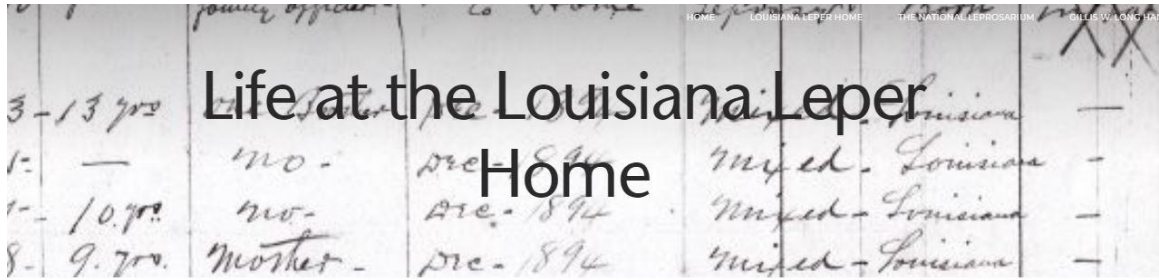 to Home
HOME LOUISIANA LEPER HOME THE NATIONAL LEPROSARIUM GILLIS W. LONG HAN
Life at the Louisiana Leper
Home
3 - 13 yrs Dec - 1894 Mixed - Louisiana —
— mo - Dec - 1894 Mixed - Louisiana -
10 yrs mo - Dec - 1894 Mixed - Louisiana -
8 - 9. yrs. Mother - Dec - 1894 Mixed - Louisiana -